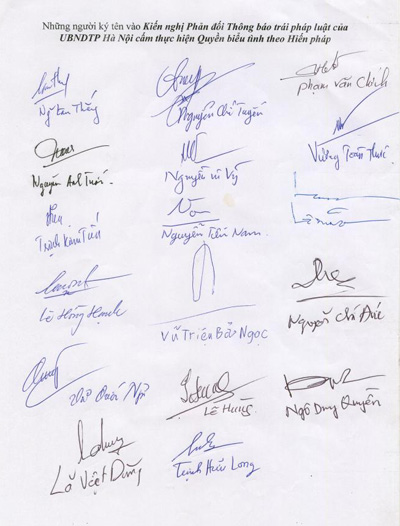 Những người ký tên vào Kiến nghị Phản đối Thông báo trái pháp luật của
UBNDTP Hà Nội cấm thực hiện Quyền biểu tình theo Hiến pháp
Phạm Văn Chính
Nguyễn Chí Tuyến
Vương Toàn
Nguyễn Anh Tuấn.
Nguyễn
Trịnh Kim Tiến
Nguyễn Tiến Nam.
Lê Hồng Hạnh
Nguyễn Chí Đức
Vũ Triệu Bảo Ngọc
Lê Hùng
Ngô Duy Quyền
Lã Việt Dũng
Trịnh Hữu Long